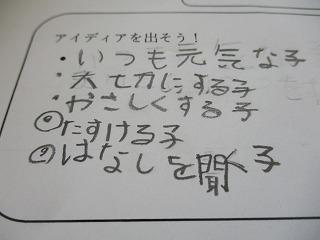 アイディアを出そう!
・いつも元気な子
・大切にする子
・やさしくする子
◎たすける子
◎はなしを聞く子